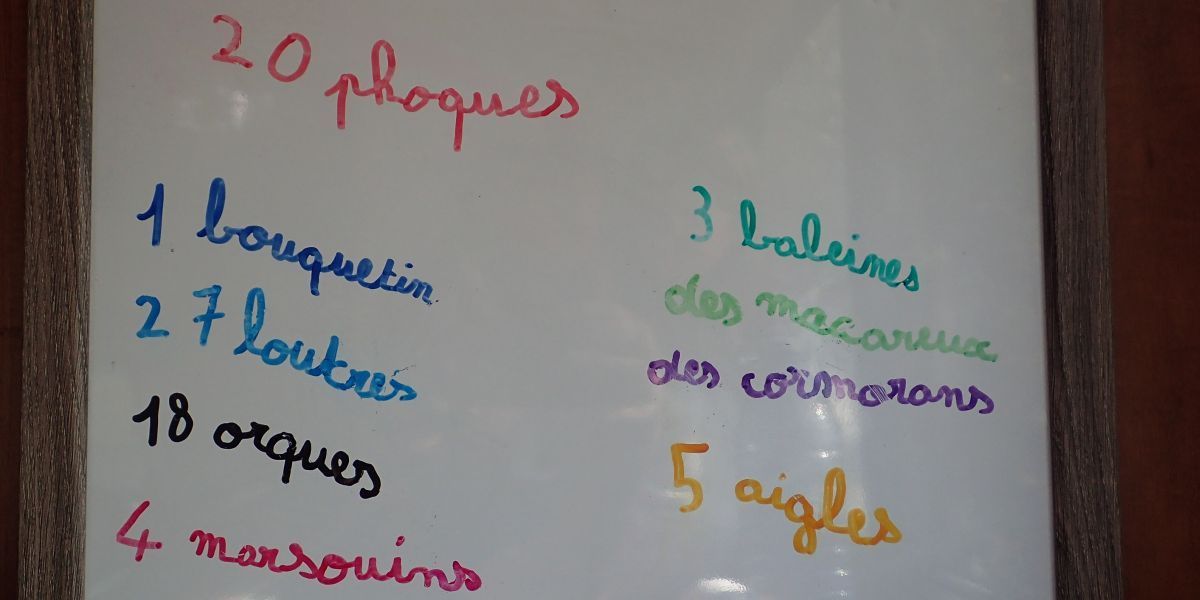 20 phoques
1 bouquetin
27 loutres
18 orques
4 marsouins
3 baleines
des macareux
des cormorans
5 aigles